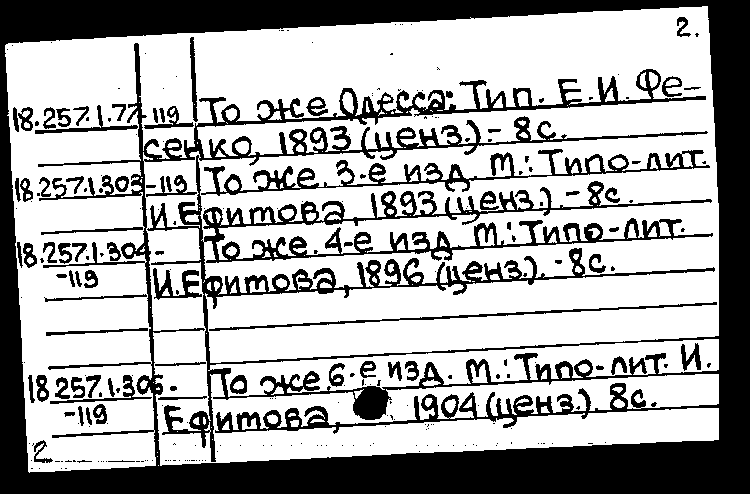 2.
18.257.1.77-119 То же. Одесса: Тип. Е.И. Фе-
сенко, 1893 (ценз.).- 8с.
18.257.1.303-119 То же. 3-е изд. М.: Типо-лит.
И.Ефитова, 1893 (ценз.). - 8с.
18.257.1.304- То же. 4-е изд. М.: Типо-лит.
-119 И.Ефитова, 1896 (ценз.). - 8с.
18.257.1.306- То же. 6-е изд. М.: Типо-лит. И.
-119 Ефитова, 1904 (ценз.). 8с.
2